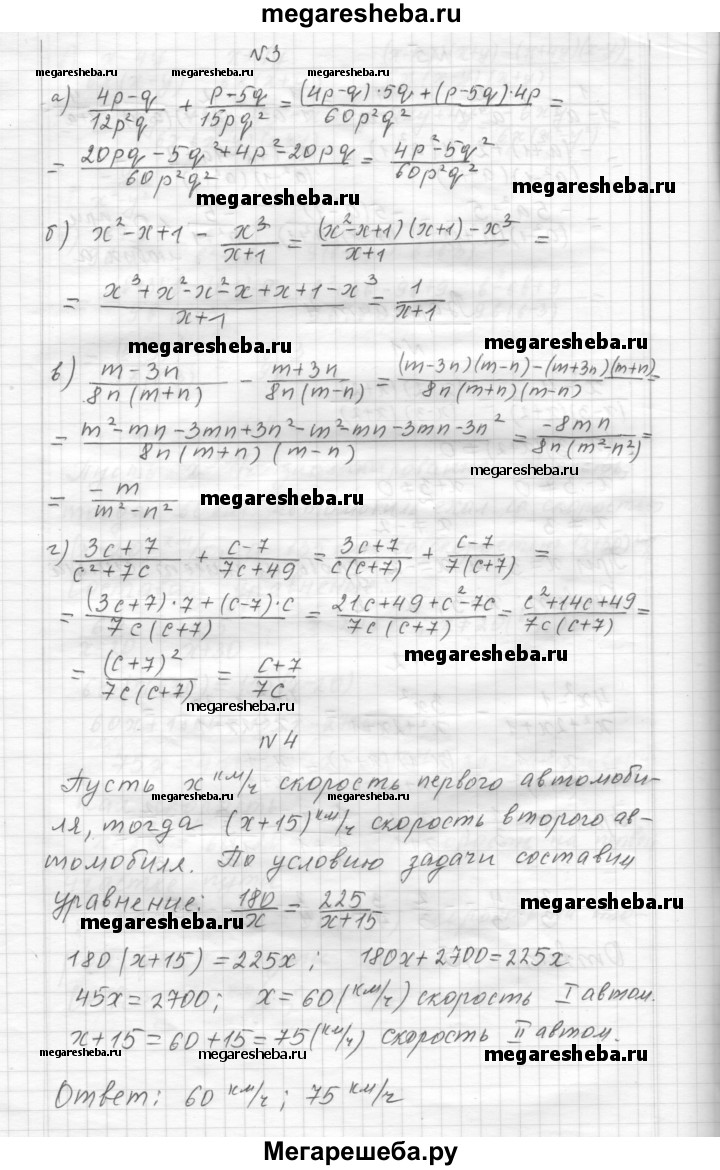 megaresheba.ru
N3
megaresheba.ru megaresheba.ru megaresheba.ru megaresheba.ru
а) (4p-q)/(12p²q) + (p-5q)/(15pq²) = ((4p-q)·5q+(p-5q)·4p)/(60p²q²) =
= (20pq-5q²+4p²-20pq)/(60p²q²) = (4p²-5q²)/(60p²q²)
megaresheba.ru megaresheba.ru
б) x²-x+1 - x³/(x+1) = ((x²-x+1)(x+1)-x³)/(x+1) =
= (x³+x²-x²-x+x+1-x³)/(x+1) = 1/(x+1)
megaresheba.ru megaresheba.ru
в) (m-3n)/(8n(m+n)) - (m+3n)/(8n(m-n)) = ((m-3n)(m-n)-(m+3n)(m+n))/(8n(m+n)(m-n)) =
= (m²-mn-3mn+3n²-m²-mn-3mn-3n²)/(8n(m+n)(m-n)) = (-8mn)/(8n(m²-n²)) =
megaresheba.ru
= (-m)/(m²-n²)
megaresheba.ru
г) (3c+7)/(c²+7c) + (c-7)/(7c+49) = (3c+7)/(c(c+7)) + (c-7)/(7(c+7)) =
= ((3c+7)·7+(c-7)·c)/(7c(c+7)) = (21c+49+c²-7c)/(7c(c+7)) = (c²+14c+49)/(7c(c+7)) =
megaresheba.ru
= (c+7)²/(7c(c+7)) = (c+7)/(7c)
megaresheba.ru
N4
Пусть x км/ч скорость первого автомоби-
megaresheba.ru megaresheba.ru megaresheba.ru
ля, тогда (x+15) км/ч скорость второго ав-
томобиля. По условию задачи составим
уравнение: 180/x = 225/(x+15)
megaresheba.ru megaresheba.ru
180(x+15)=225x; 180x+2700=225x
45x=2700; x=60(км/ч) скорость I автом.
x+15=60+15=75(км/ч) скорость II автом.
megaresheba.ru megaresheba.ru megaresheba.ru
Ответ: 60 км/ч; 75 км/ч
Мегарешеба.ру